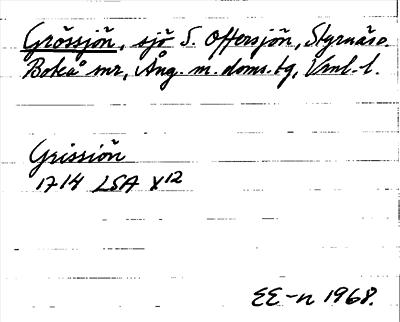 Grössjön, sjö S. Offersjön, Styrnäs s.
Boteå snr, Ång. m. doms. tg, Vrnl. l.
Grissiön
1714 LSA Y12
EE-n 1968.